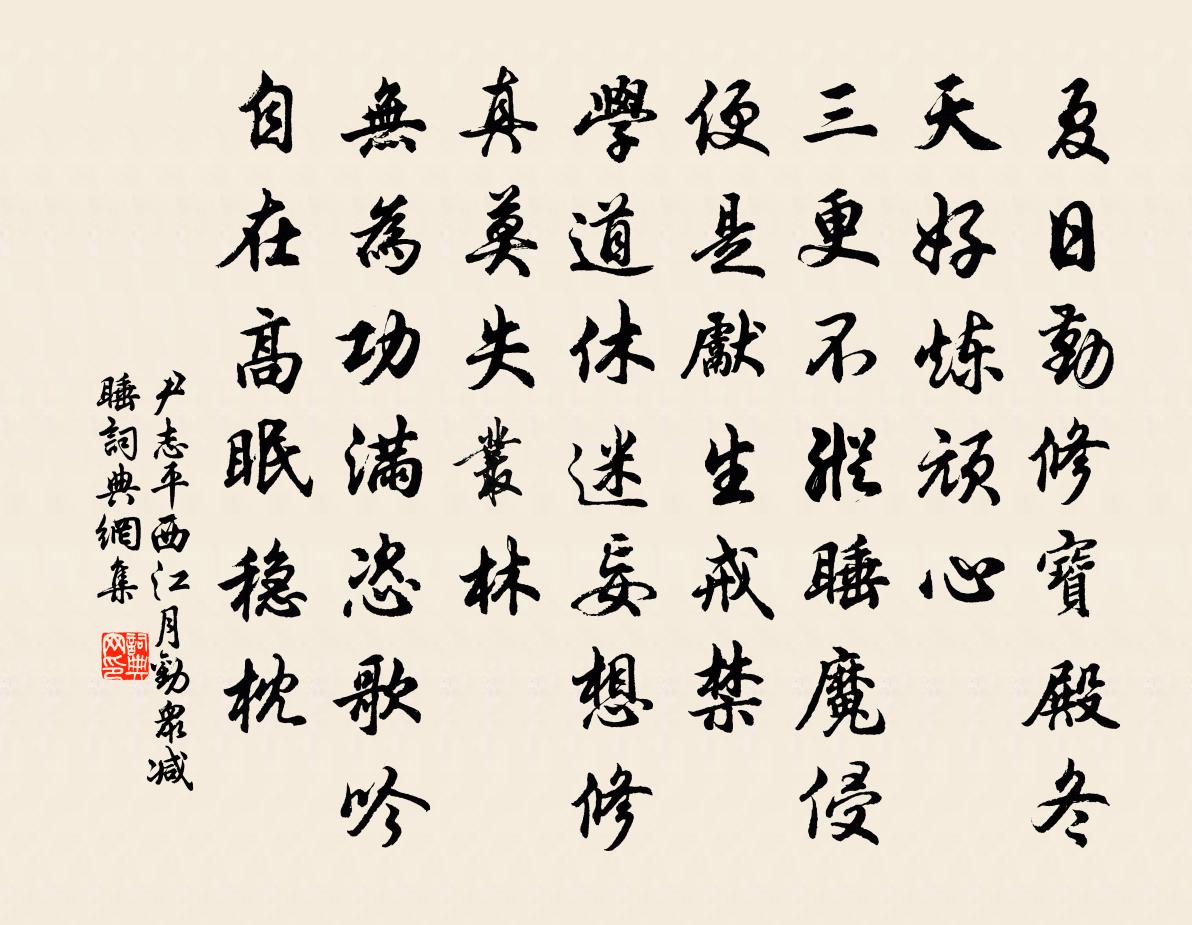 夏日勤修寶殿冬
天好炼頑心
三更不縱睡魔侵
便是獻生戒禁
學道休迷妄想修
真莫失叢林
無為功滿恣歌吟
自在高眠穏枕
尹志平西江月勸衆减
睡詞典網集
詞典网印